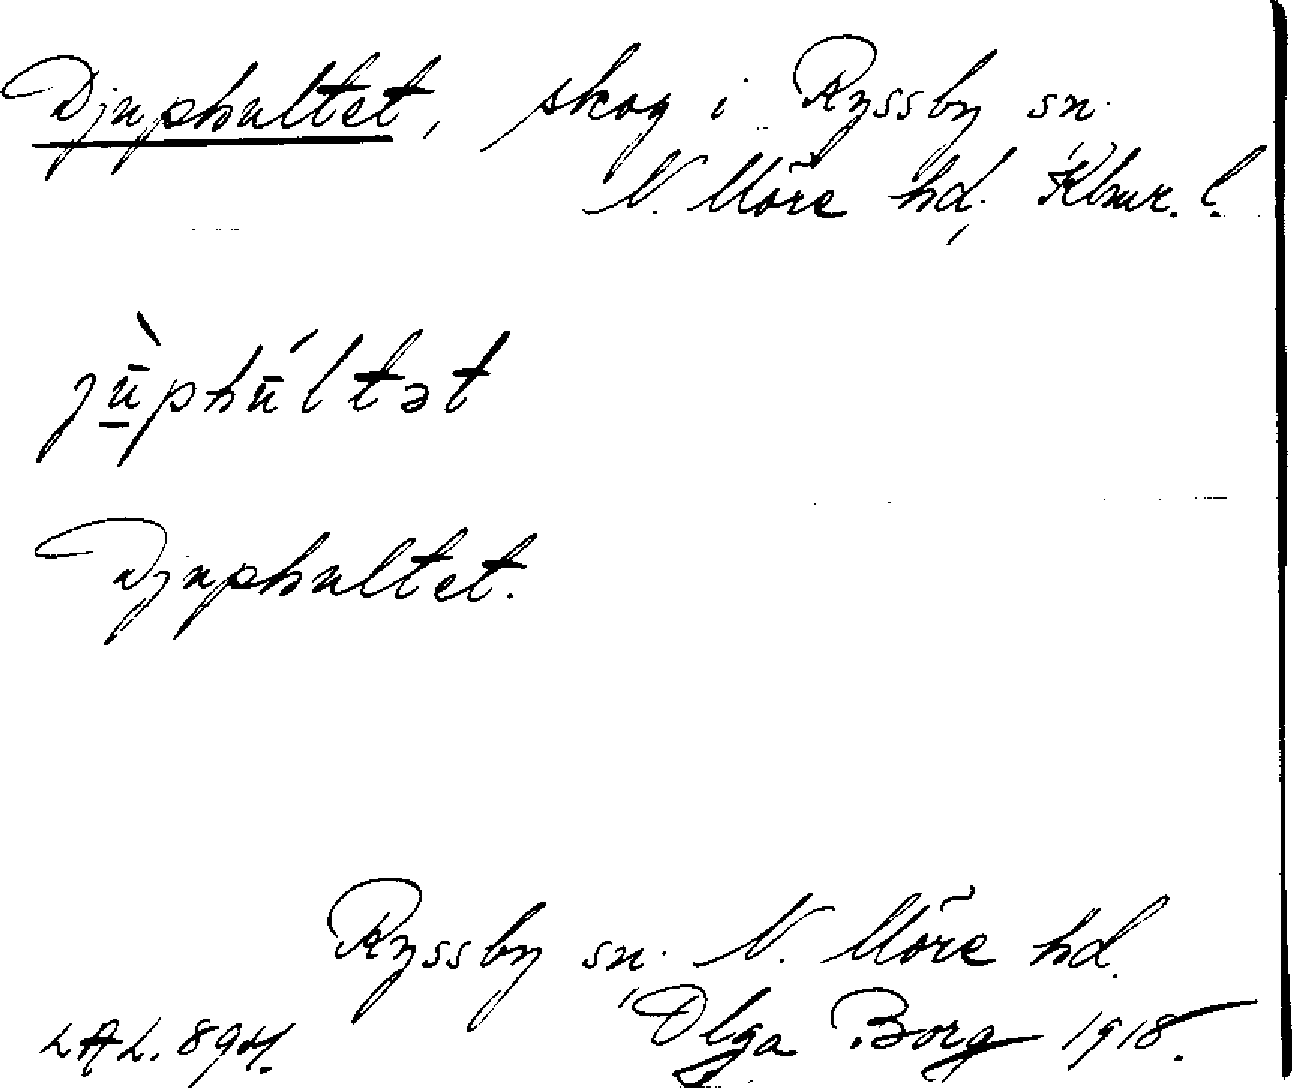 Djuphultet, skog i Ryssby sn.
N. Möre hd, Klmr. l.
jùphúltət
Djuphultet.
Ryssby sn, N. Möre hd.
LAL. 894. Olga Borg 1918.